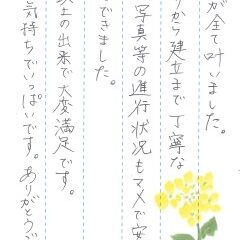 が全て叶いました。
りから建立まで丁寧な
写真等の進行状況もマメで安
できました。
の出来で大変満足です。
気持ちでいっぱいです。ありがとうご